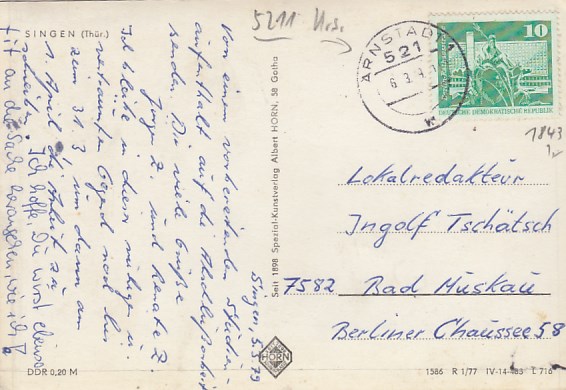 SINGEN (Thür.)
5211 Urs.
ARNSTADT 1
521
6.3.
10
DEUTSCHE DEMOKRATISCHE REPUBLIK
1843
Singen, 5.3.79
Von einem vorbereitenden Studien-
aufenthalt auf die
sende Dir viele Grüße
Jürgen Z. und Renate Z.
Ich bleibe in dieser ruhigen u.
Gegend noch bis
zum 31.3, um dann am
1. April die Arbeit zu
Ich hoffe, Du wirst ebenso
fit an die Sache wie ich
Seit 1898 Spezial-Kunstverlag Albert HORN, 58 Gotha
HORN
Lokalredakteur
Ingolf Tschätsch
7582 Bad Muskau
Berliner Chaussee 58
DDR 0,20 M
1586 R 1/77 IV-14-483 L 716